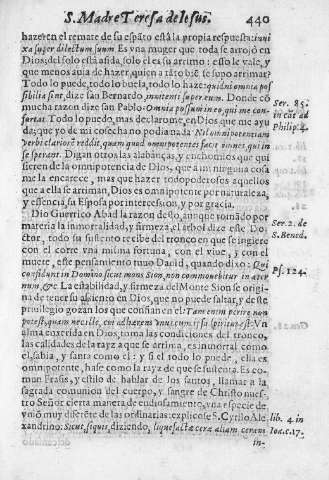 S. Madre Teresa de Iesus. 440
haze? en el remate de su espãto está la propria respuesta: inni
xa super dilectum suum. Es vna muger que toda se arrojò en
Dios; del solo està asida, solo el es su arrimo: esso le vale, y
que menos auia de hazer, quien a tãto biẽ se supo arrimar?
Todo lo puede, todo lo buela, todo lo haze: quidni omnia pos
sibilia sint, dize san Bernardo, innitenti super eum. Donde cõ
mucha razon dize san Pablo: Omnia possum in eo, qui me con-
fortat. Todo lo puedo, mas declarome, en Dios que me ayu
da; que yo de mi cosecha no podia nada Nil omnipotentiam
verbi clariorẽ reddit, quam quod omnipotentes facit omnes, qui in
se sperant. Digan otros las alabanças, y enchomios que qui
sieren de la omnipotencia de Dios, que a mi ninguna cosa
me la encarece, mas que hazer todopoderosos aquellos
que a ella se arriman, Dios es omnipotente por naturaleza,
y essencia, su Esposa por intercession, y por gracia.
Dio Guerrico Abad la razon desto, aunque tomado por
materia la inmortalidad, y firmeza, el arbol dize este Do-
ctor, todo su sustento recibe del tronco en que se ingiere
con el corre vna misma fortuna, con el viue, y con el
muere, este pensamiento tuuo Dauid, quando dixo: Qui
confidunt in Domino sicut mons Sion, non commouebitur in æter
num, &c. La estabilidad, y firmeza del Monte Sion se origi-
na de tener su asiento en Dios, que no puede faltar, y deste
priuilegio gozan los que confian en el: Tam enim perire non
potest, quam nescit, cui adhærens vnus cum ipso spiritus est: Vn
alma enxerida en Dios, toma las condiciones del tronco,
las calidades de la rayz a que se arrima, es inmortal como
el, sabia, y santa como el: y si el todo lo puede, ella es
omnipotente, hase como la rayz de que se sustenta. Es co-
mun Frasis, y estilo de hablar de los santos, llamar a la
sagrada comunion del cuerpo, y sangre de Christo nues-
tro Señor cierta manera de endiosamiento, vna especie de
vniõ muy diferẽte de las ordinarias: explicose S. Cyrilo Ale
xandrino: Sicut, siquis, diziendo, liquefactæ ceræ aliam ceram
in-
Ser. 85.
in cãt. ad
Philip. 4.
Ser. 2. de
S. Bened.
Ps. 124.
lib. 4 in
Ioa. c. 17.